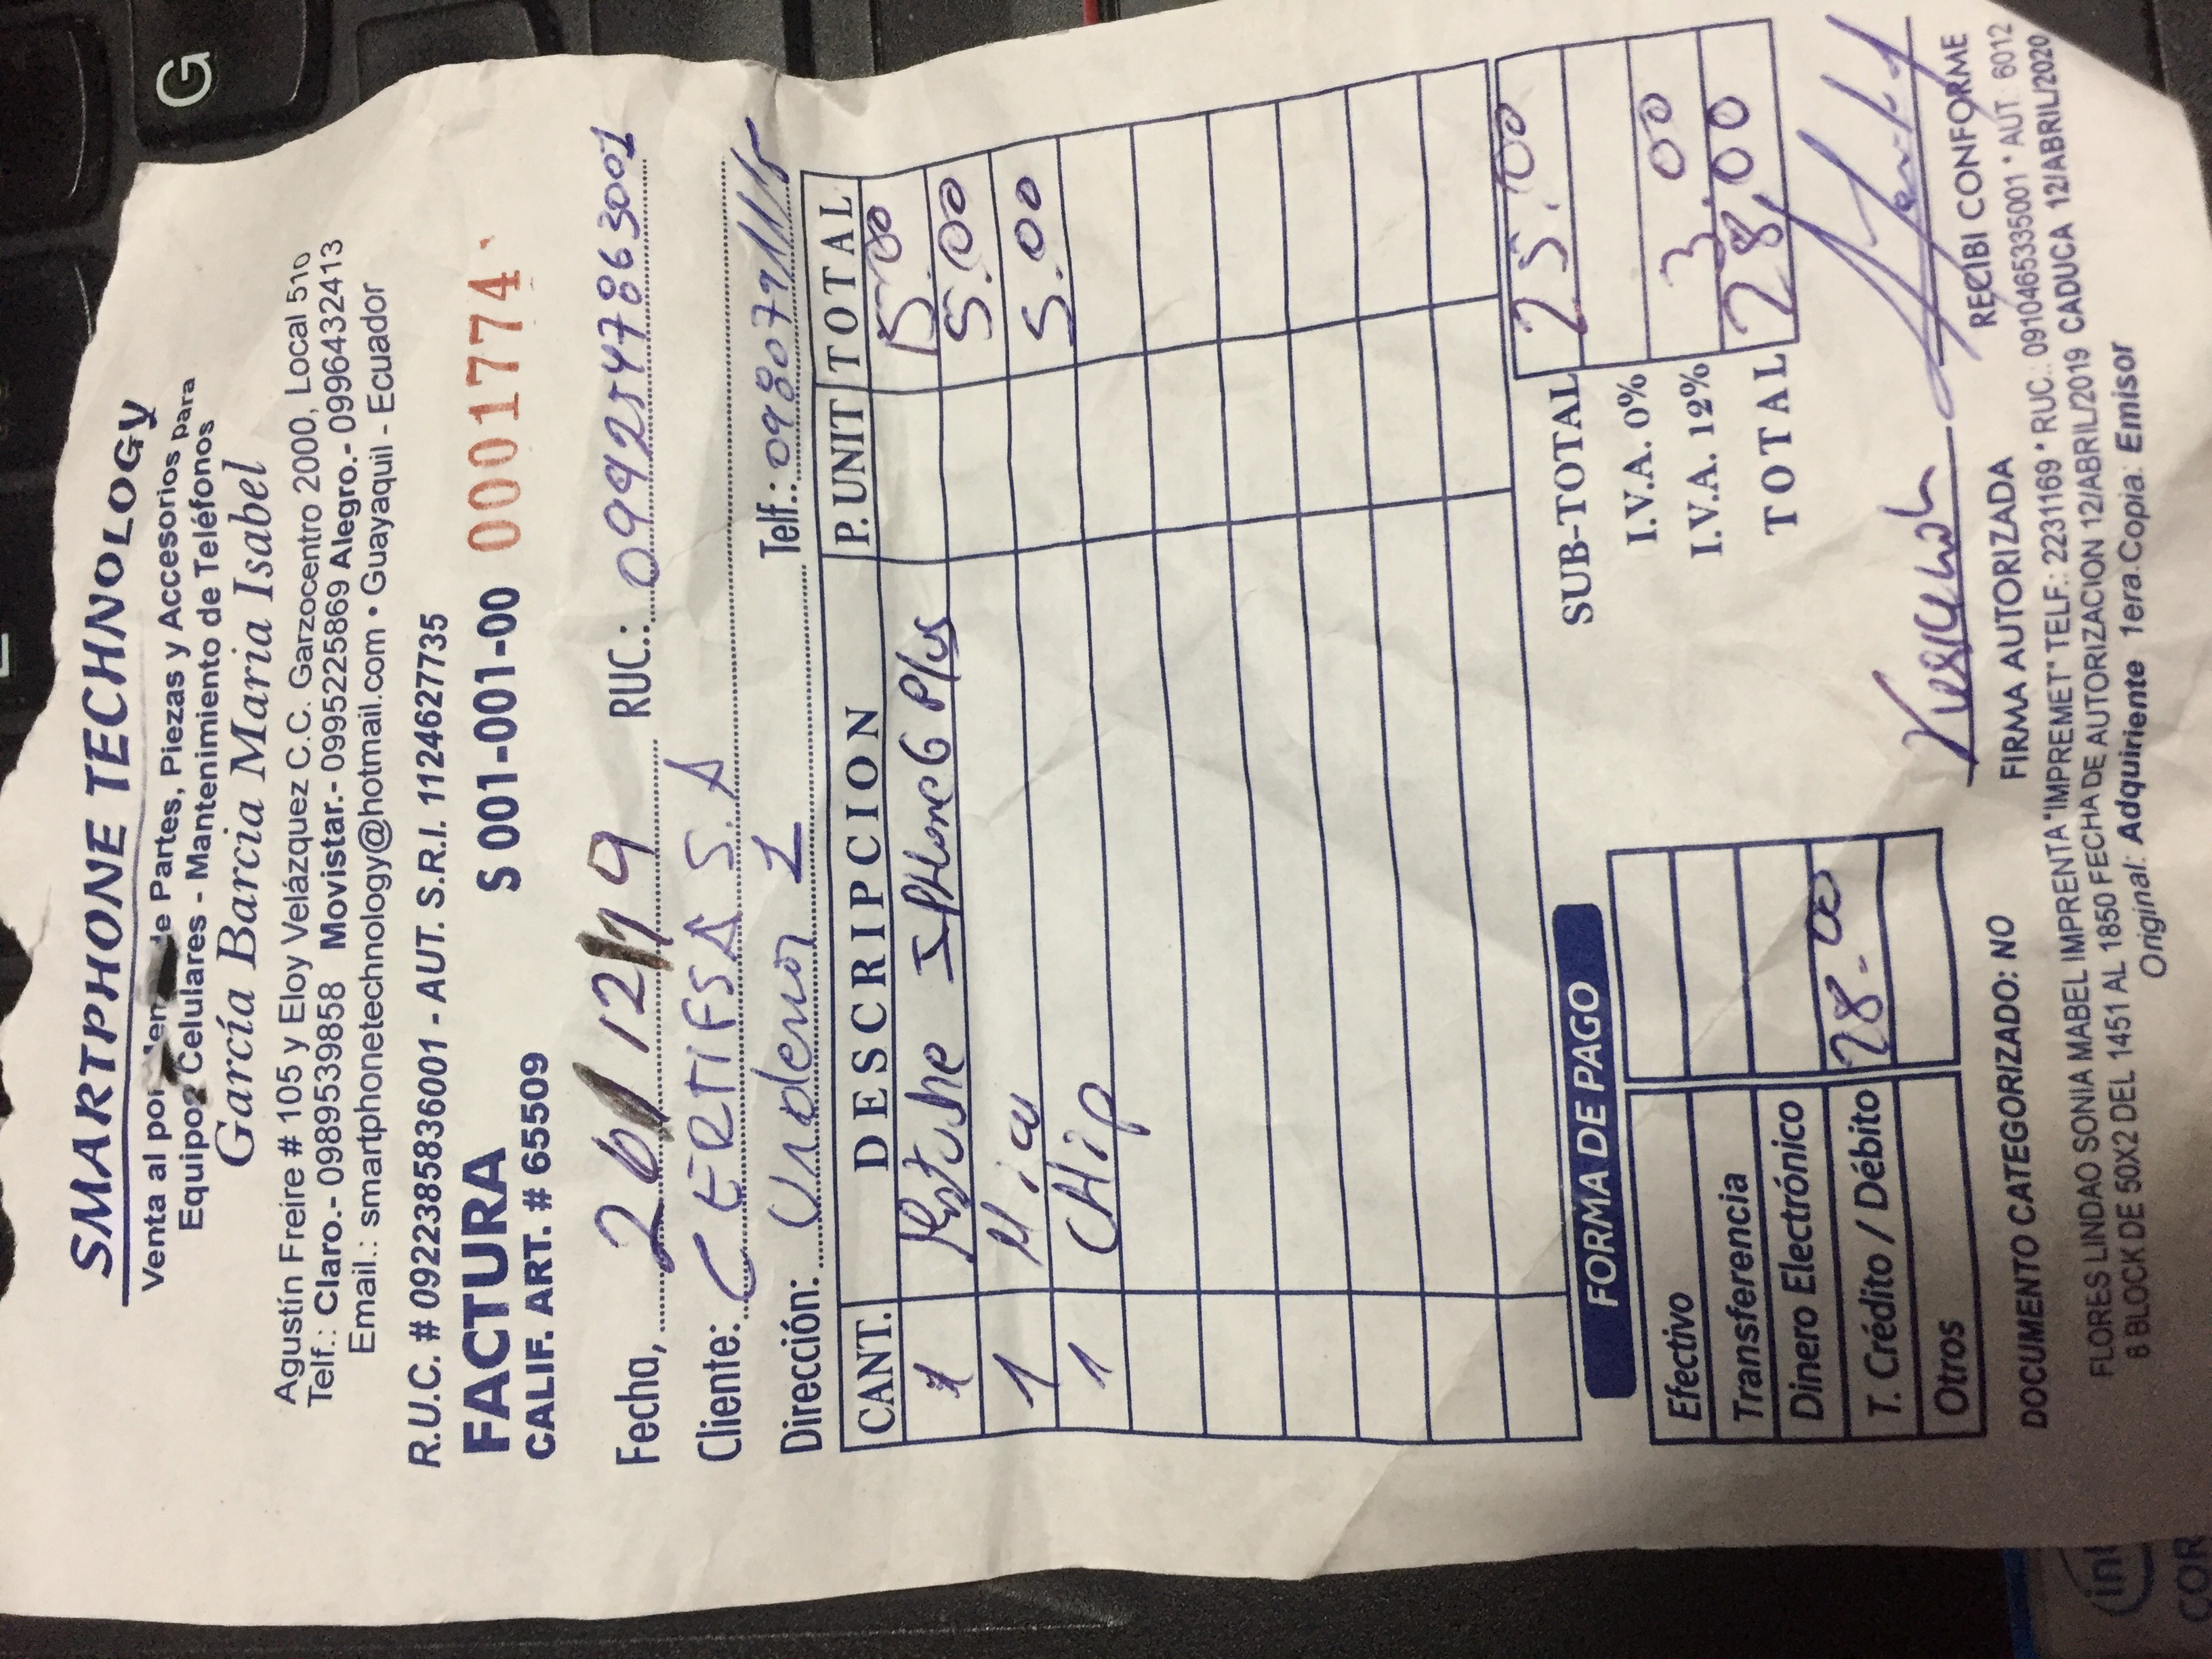 SMARTPHONE TECHNOLOGY
Venta al por Partes, Piezas y Accesorios para
Equipos Celulares - Mantenimiento de Teléfonos
García Barcia Maria Isabel
Agustín Freire # 105 y Eloy Velázquez C.C. Garzocentro 2000, Local 510
Telf.: Claro.- 0989539858 Movistar.- 0995225869 Alegro.- 0996432413
Email.: smartphonetechnology@hotmail.com • Guayaquil - Ecuador
R.U.C. # 0922385836001 - AUT. S.R.I. 1124627735
FACTURA S 001-001-00 0001774
CALIF. ART. # 65509
Fecha, 26/12/19 RUC.: 0992547863001
Cliente: CERTIFSA S.A
Dirección: 1 Telf.: 0980791115
CANT. DESCRIPCION P. UNIT TOTAL
1 IPHone 6 Plus 15.00
1 Mica 5.00
1 CHip 5.00
SUB-TOTAL 25.00
I.V.A. 0%
I.V.A. 12% 3.00
TOTAL 28,00
FORMA DE PAGO
Efectivo
Transferencia
Dinero Electrónico
T. Crédito / Débito 28.00
Otros
FIRMA AUTORIZADA RECIBI CONFORME
DOCUMENTO CATEGORIZADO: NO
FLORES LINDAO SONIA MABEL IMPRENTA "IMPREMET" TELF.: 2231169 * RUC.: 0910465335001 * AUT. 6012
8 BLOCK DE 50X2 DEL 1451 AL 1850 FECHA DE AUTORIZACION 12/ABRIL/2019 CADUCA 12/ABRIL/2020
Original: Adquiriente 1era.Copia: Emisor
G